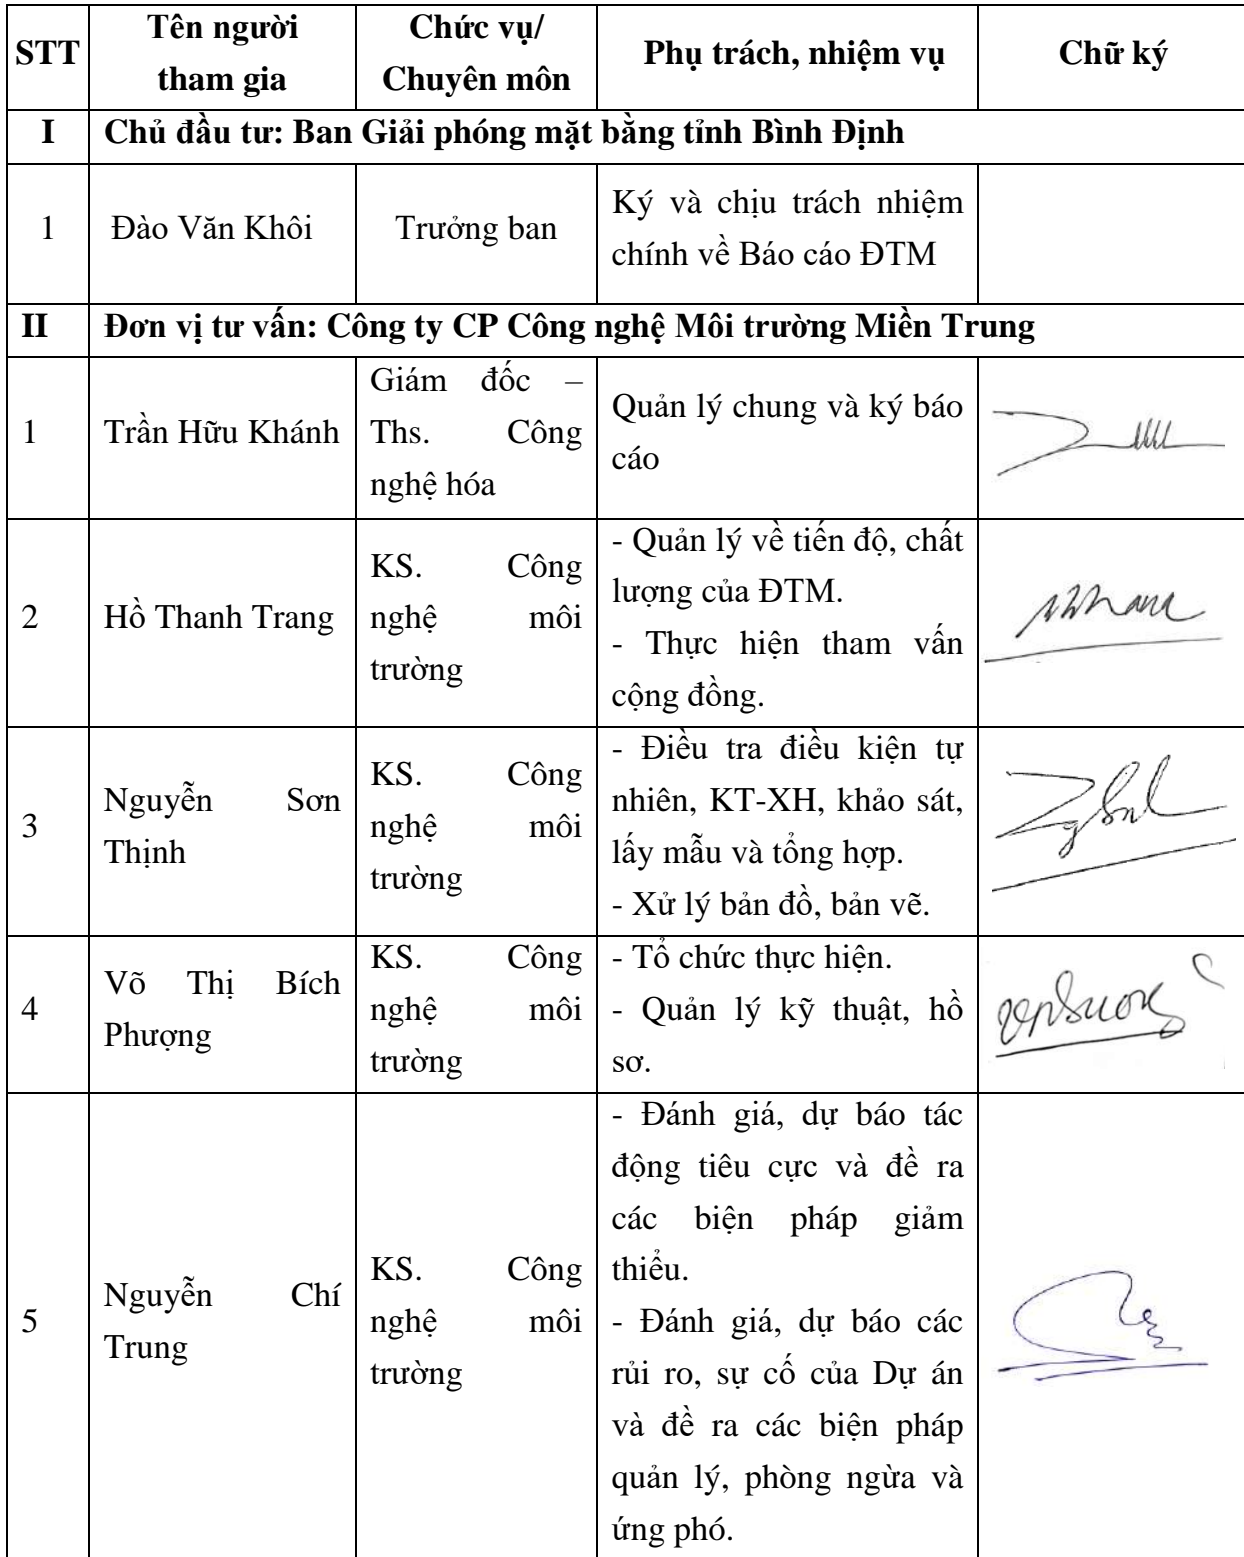 STT
Tên người
tham gia
Chức vụ/
Chuyên môn
Phụ trách, nhiệm vụ
Chữ ký
I
Chủ đầu tư: Ban Giải phóng mặt bằng tỉnh Bình Định
1
Đào Văn Khôi
Trưởng ban
Ký và chịu trách nhiệm
chính về Báo cáo ĐTM
II
Đơn vị tư vấn: Công ty CP Công nghệ Môi trường Miền Trung
1
Trần Hữu Khánh
Giám đốc –
Ths. Công
nghệ hóa
Quản lý chung và ký báo
cáo
2
Hồ Thanh Trang
KS. Công
nghệ môi
trường
- Quản lý về tiến độ, chất
lượng của ĐTM.
- Thực hiện tham vấn
cộng đồng.
3
Nguyễn Sơn
Thịnh
KS. Công
nghệ môi
trường
- Điều tra điều kiện tự
nhiên, KT-XH, khảo sát,
lấy mẫu và tổng hợp.
- Xử lý bản đồ, bản vẽ.
4
Võ Thị Bích
Phượng
KS. Công
nghệ môi
trường
- Tổ chức thực hiện.
- Quản lý kỹ thuật, hồ
sơ.
5
Nguyễn Chí
Trung
KS. Công
nghệ môi
trường
- Đánh giá, dự báo tác
động tiêu cực và đề ra
các biện pháp giảm
thiểu.
- Đánh giá, dự báo các
rủi ro, sự cố của Dự án
và đề ra các biện pháp
quản lý, phòng ngừa và
ứng phó.